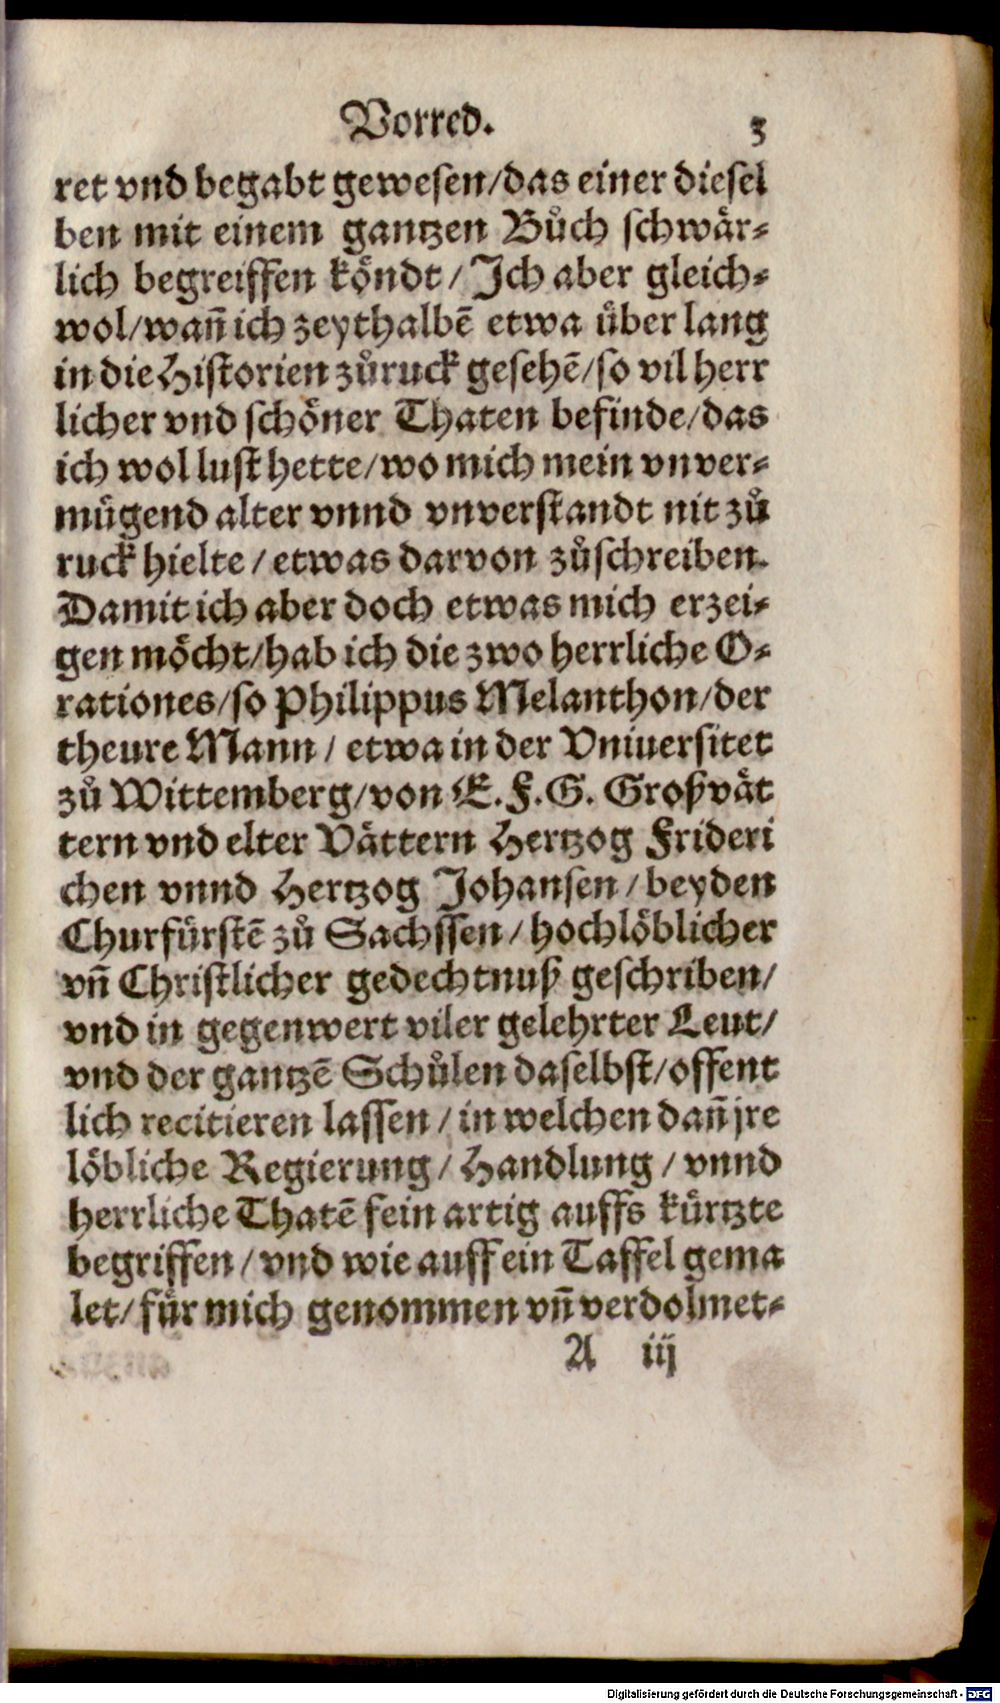 Vorred. 3
ret vnd begabt gewesen/das einer diesel
ben mit einem gantzen Bůch schwär-
lich begreiffen köndt/Ich aber gleich-
wol/wañ ich zeythalbẽ etwa über lang
in die Historien zůruck gesehẽ/so vil herr
licher vnd schöner Thaten befinde/das
ich wol lust hette/wo mich mein vnver-
mügend alter vnnd vnverstandt nit zů
ruck hielte/etwas darvon zůschreiben.
Damit ich aber doch etwas mich erzei-
gen möcht/hab ich die zwo herrliche O-
rationes/so Philippus Melanthon/der
theure Mann/etwa in der Vniuersitet
zů Wittemberg/von E.F.G. Großvät
tern vnd elter Vättern Hertzog Frideri
chen vnnd Hertzog Johansen/beyden
Churfürstẽ zů Sachssen/hochlöblicher
vñ Christlicher gedechtnuß geschriben/
vnd in gegenwert viler gelehrter Leut/
vnd der gantzẽ Schůlen daselbst/offent
lich recitieren lassen/in welchen dañ jre
löbliche Regierung/Handlung/vnnd
herrliche Thatẽ fein artig auffs kürtzte
begriffen/vnd wie auff ein Taffel gema
let/für mich genommen vñ verdolmet-
A iij
Digitalisierung gefördert durch die Deutsche Forschungsgemeinschaft - DFG